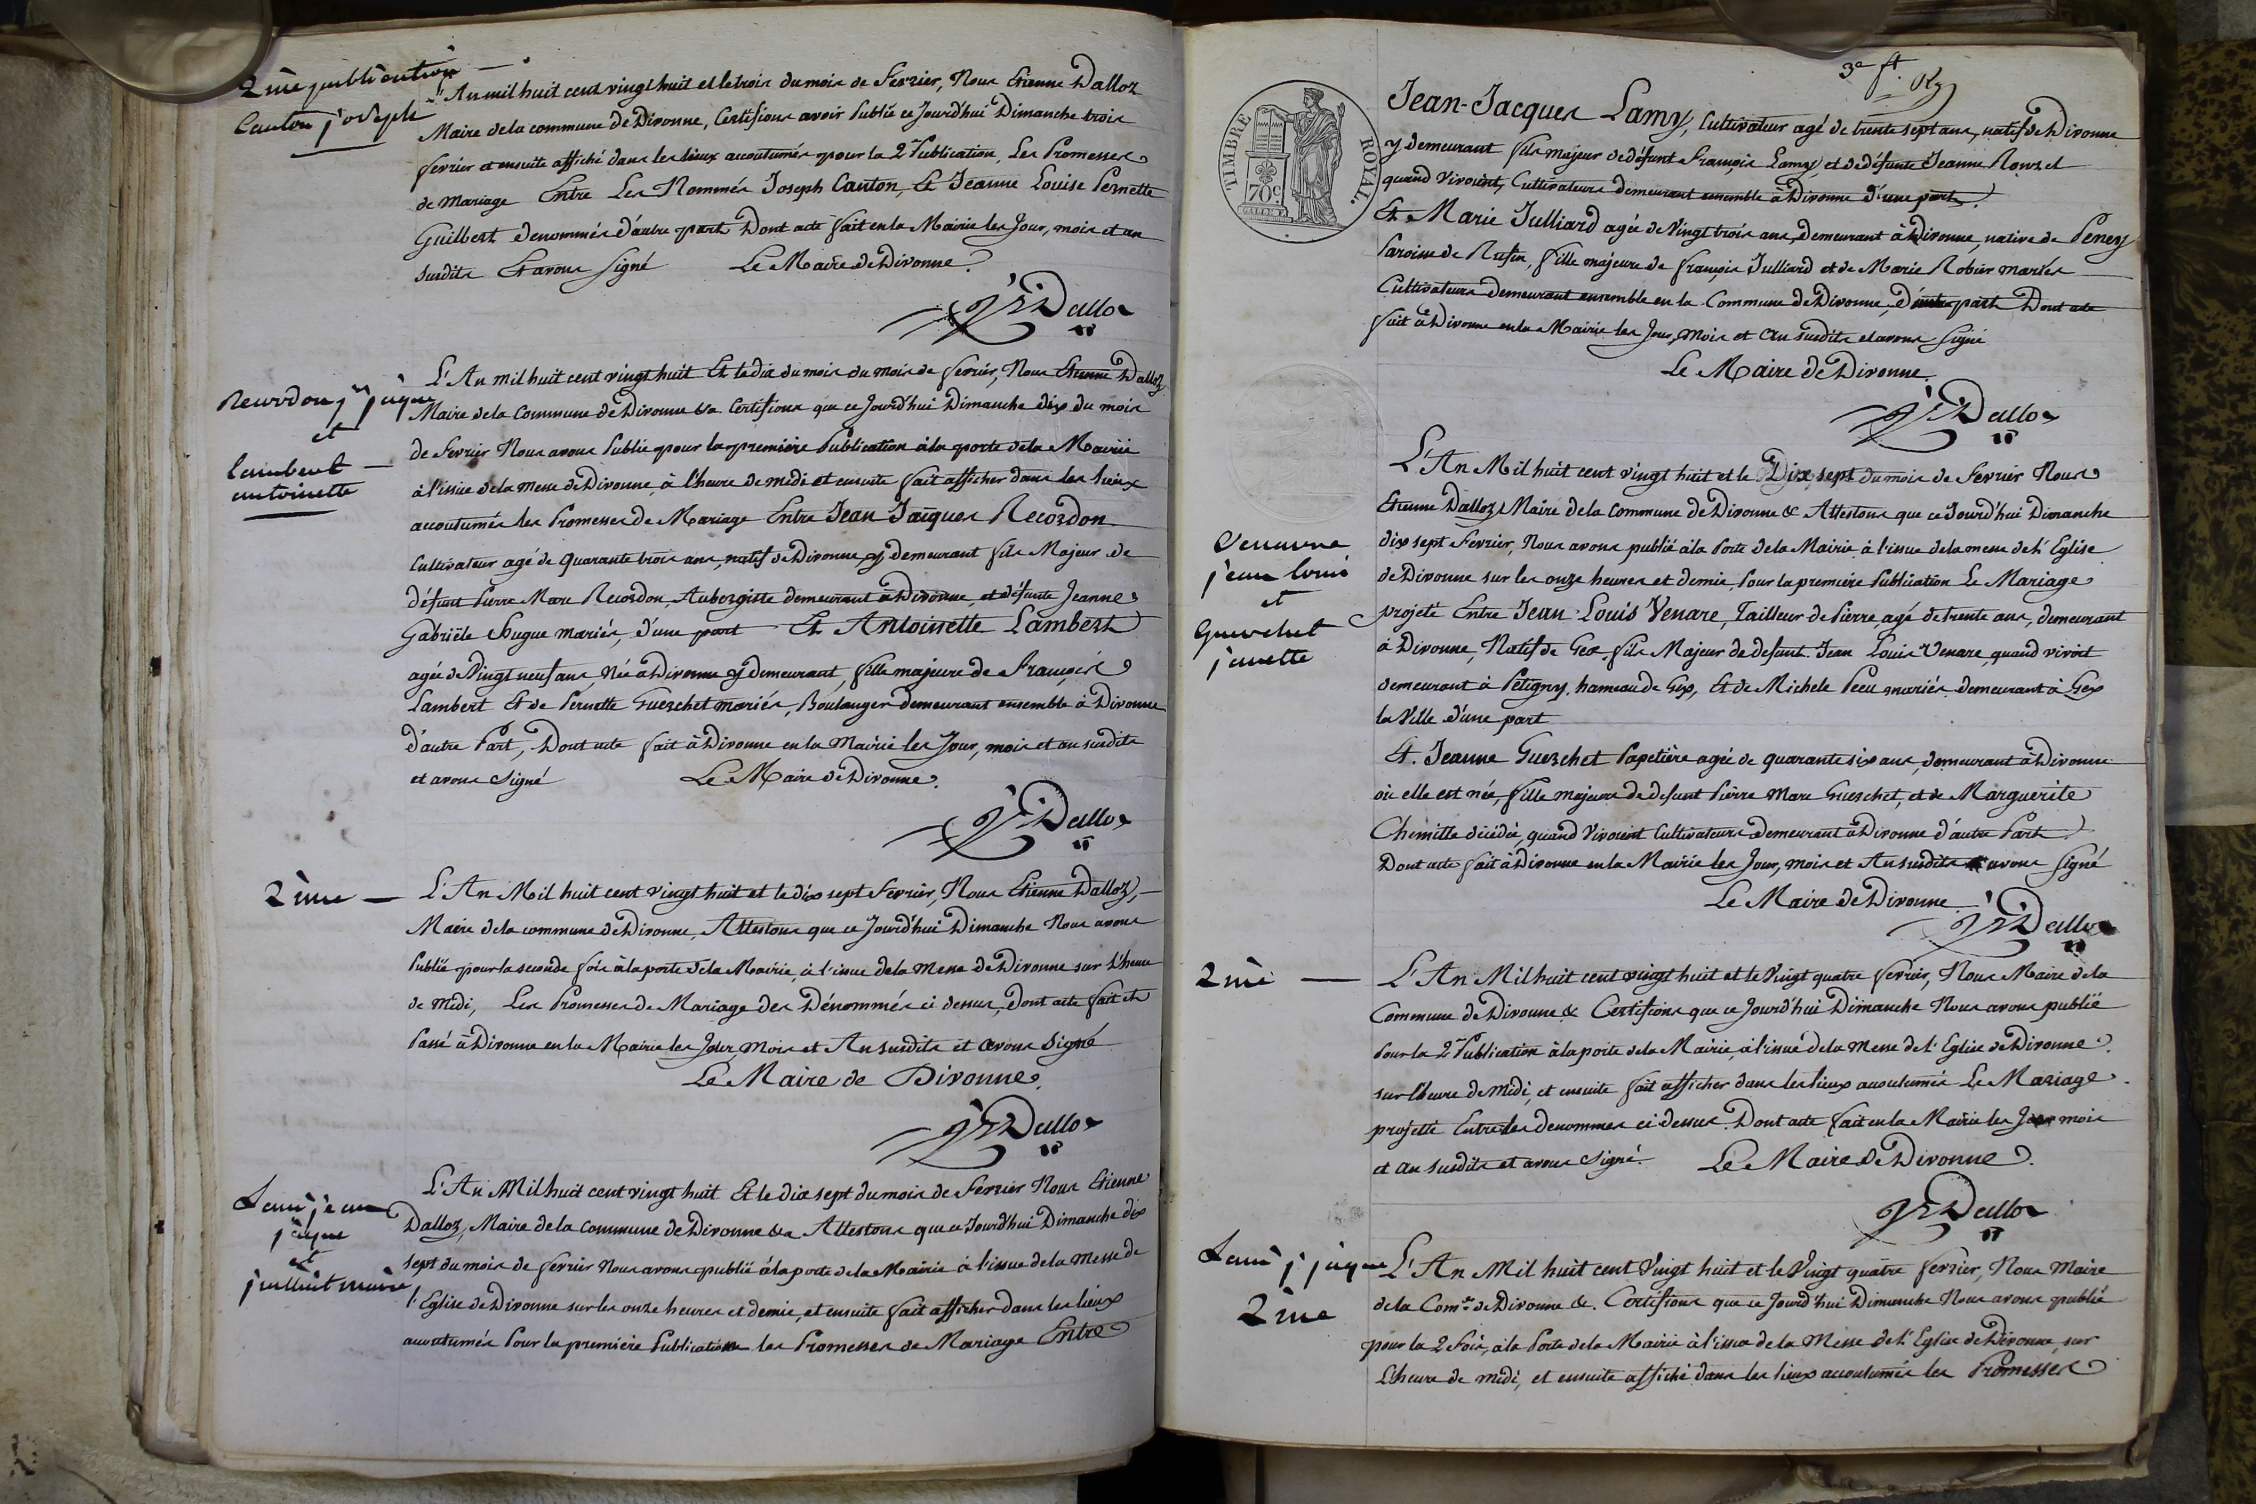 2ème publication
Canton joseph
L'An mil huit cent vingt huit et le trois du mois de Fevrier, Nous Etienne Dalloz
Maire de la commune de Divonne, Certifions avoir Publié ce Jourd'hui Dimanche trois
fevrier et ensuite affiché dans les lieux accoutumés pour la 2e Publication, Les Promesses
de Mariage Entre Les Nommés Joseph Canton, Et Jeanne Louise Pernette
Guilbert denommés d'autre part Dont acte fait en la Mairie les Jour, mois et an
susdits Et avons signé Le Maire de Divonne.
Dalloz
Recordon jn jaque
et
Lambert
antoinette
L'An mil huit cent vingt huit Et le dix du mois du mois de fevrier, Nous Etienne Dalloz
Maire de la Commune de Divonne &a Certifions que ce Jourd'hui Dimanche dix du mois
de Fevrier Nous avons Publié pour la premiere Publication à la porte de la Mairie
à l'issue de la Messe de Divonne, à l'heure de midi et ensuite fait afficher dans les lieux
accoutumés les Promesses de Mariage Entre Jean Jacques Recordon
Cultivateur agé de Quarante trois ans, natif de Divonne y demeurant fils Majeur de
défunt Pierre Marc Recordon, Aubergiste demeurant à Divonne, et défunte Jeanne
Gabrièle Hugue mariés, d'une part Et Antoinette Lambert
agée de Vingt neuf ans, Née à Divonne y demeurant, fille majeure de François
Lambert Et de Pernette Guerchet mariés, Boulanger demeurant ensemble à Divonne
d'autre Part, Dont acte fait à Divonne en la Mairie les Jour, mois et an susdits
et avons signé Le Maire de Divonne.
Dalloz
2ème
L'An Mil huit cent vingt huit et le dix sept Fevrier, Nous Etienne Dalloz,
Maire de la commune de Divonne, Attestons que ce Jourd'hui Dimanche Nous avons
Publié pour la seconde fois à la porte de la Mairie, à l'issue de la Messe de Divonne sur l'heure
de Midi, Les Promesses de Mariage des Dénommés ci dessus, Dont acte fait et
Passé à Divonne en la Mairie les Jour, Mois et An susdits et avons Signé
Le Maire de Divonne.
Dalloz
Lami jean
jâque
et
julluit marie
L'An Mil huit cent vingt huit Et le dix sept du mois de Fevrier Nous Etienne
Dalloz, Maire de la Commune de Divonne &a Attestons que ce Jourd'hui Dimanche dix
sept du mois de fevrier Nous avons publié à la porte de la Mairie à l'issue de la Messe de
l'Eglise de Divonne sur les onze heures et demie, et ensuite fait afficher dans les lieux
accoutumés Pour la premiere Publication les Promesses de Mariage Entre
3e ft.
TIMBRE ROYAL.
70 c.
Jean-Jacques Lamy, Cultivateur agé de trente sept ans, natif de Divonne
y demeurant fils majeur de défunt François Lamy, et de défunte Jeanne
quand vivoient, Cultivateurs demeurant ensemble à Divonne d'une part.
Et Marie Julliard agée de Vingt trois ans, demeurant à Divonne, native de Peney
Paroisse de Rusin, fille majeure de françois Julliard et de Marie Robier mariés
Cultivateurs demeurant ensemble en la Commune de Divonne, d'autre part Dont acte
fait à Divonne en la Mairie les Jour, Mois et an susdits et avons signé
Le Maire de Divonne.
Dalloz
Venarre
jean louis
et
Guerchet
janette
L'An Mil huit cent vingt huit et le Dix sept du mois de Fevrier Nous
Etienne Dalloz Maire de la Commune de Divonne & Attestons que ce Jourd'hui Dimanche
dix sept Fevrier, Nous avons publié à la Porte de la Mairie, à l'issue de la messe de l'Eglise
de Divonne sur les onze heures et demie, Pour la premiere Publication Le Mariage
projeté Entre Jean-Louis Venare, Tailleur de Pierre, agé de trente ans, demeurant
à Divonne, Natif de Gex, fils Majeur de defunt Jean Louis Venare, quand vivoit
demeurant à Pétigny, hameau de Gex, Et de Michele Pecu mariés demeurant à Gex
la Ville d'une part
Et. Jeanne Guerchet Papetière agée de quarante six ans, demeurant à Divonne
où elle est née, fille majeure de defunt Pierre Marc Guerchet, et de Marguerite
Chemitte décédée, quand Vivoient Cultivateurs demeurant à Divonne d'autre Part
Dont acte fait à Divonne en la Mairie les Jour, mois et An susdits avons signé
Le Maire de Divonne
Dalloz
2mè
L'An Mil huit cent vingt huit et le Vingt quatre fevrier, Nous Maire de la
Commune de Divonne & Certifions que ce Jourd'hui Dimanche Nous avons publié
Pour la 2e Publication à la porte de la Mairie, à l'issue de la Messe de l'Eglise de Divonne
sur l'heure de Midi, et ensuite fait afficher dans les lieux accoutumés Le Mariage
projetté Entre les denommés ci dessus. Dont acte fait en la Mairie les Jour mois
et An susdits et avons signé. Le Maire de Divonne.
Dalloz
Lami j. jaque
2me
L'An Mil huit cent Vingt huit et le Vingt quatre fevrier, Nous Maire
de la Comne de Divonne &. Certifions que ce Jourd'hui Dimanche Nous avons publié
pour la 2 Fois, à la Porte de la Mairie à l'issue de la Messe de l'Eglise de Divonne, sur
L'heure de midi, et ensuite affiché dans les lieux accoutumés les Promesses